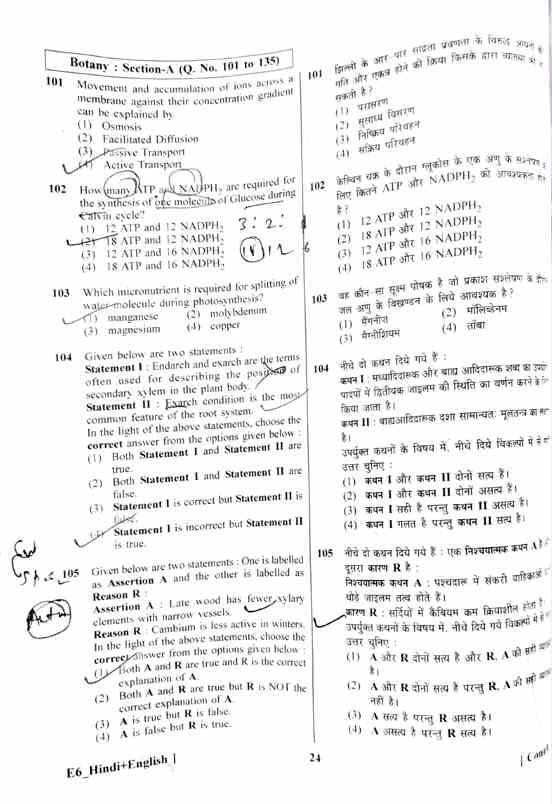 Botany : Section-A (Q. No. 101 to 135)
101 Movement and accumulation of ions across a
membrane against their concentration gradient
can be explained by
(1) Osmosis
(2) Facilitated Diffusion
(3) Passive Transport
(4) Active Transport
102 How many ATP and NADPH₂ are required for
the synthesis of one molecule of Glucose during
Calvin cycle?
(1) 12 ATP and 12 NADPH₂
(2) 18 ATP and 12 NADPH₂
(3) 12 ATP and 16 NADPH₂
(4) 18 ATP and 16 NADPH₂
3:2:
18 12
103 Which micronutrient is required for splitting of
water molecule during photosynthesis?
(1) manganese (2) molybdenum
(3) magnesium (4) copper
104 Given below are two statements :
Statement I : Endarch and exarch are the terms
often used for describing the position of
secondary xylem in the plant body.
Statement II : Exarch condition is the most
common feature of the root system.
In the light of the above statements, choose the
correct answer from the options given below :
(1) Both Statement I and Statement II are
true.
(2) Both Statement I and Statement II are
false.
(3) Statement I is correct but Statement II is
false.
(4) Statement I is incorrect but Statement II
is true.
105 Given below are two statements : One is labelled
as Assertion A and the other is labelled as
Reason R :
Assertion A : Late wood has fewer xylary
elements with narrow vessels.
Reason R : Cambium is less active in winters.
In the light of the above statements, choose the
correct answer from the options given below :
(1) Both A and R are true and R is the correct
explanation of A.
(2) Both A and R are true but R is NOT the
correct explanation of A.
(3) A is true but R is false.
(4) A is false but R is true.
101 झिल्ली के आर पार सांद्रता प्रवणता के विरुद्ध
गति और एकत्र होने की क्रिया किसके द्वारा
सकती है ?
(1) परासरण
(2) सुसाध्य विसरण
(3) निष्क्रिय परिवहन
(4) सक्रिय परिवहन
102 केल्विन चक्र के दौरान ग्लूकोस के एक अणु के संश्लेषण
लिए कितने ATP और NADPH₂ की आवश्यकता
है ?
(1) 12 ATP और 12 NADPH₂
(2) 18 ATP और 12 NADPH₂
(3) 12 ATP और 16 NADPH₂
(4) 18 ATP और 16 NADPH₂
103 वह कौन सा सूक्ष्म पोषक है जो प्रकाश संश्लेषण के
जल अणु के विखण्डन के लिये आवश्यक है ?
(1) मैंगनीज (2) मॉलिब्डेनम
(3) मैग्नीशियम (4) तांबा
104 नीचे दो कथन दिये गये हैं :
कथन I : मध्यादिदारूक और बाह्य आदिदारूक शब्द का
पादपों में द्वितीयक जाइलम की स्थिति का वर्णन करने के
किया जाता है।
कथन II : बाह्यआदिदारूक दशा सामान्यतः मूलतन्त्र का
है।
उपर्युक्त कथनों के विषय में, नीचे दिये विकल्पों में से
उत्तर चुनिए :
(1) कथन I और कथन II दोनों सत्य हैं।
(2) कथन I और कथन II दोनों असत्य हैं।
(3) कथन I सही है परन्तु कथन II असत्य है।
(4) कथन I गलत है परन्तु कथन II सत्य है।
105 नीचे दो कथन दिये गये हैं : एक निश्चयात्मक कथन A है
दूसरा कारण R है :
निश्चयात्मक कथन A : पश्चदारू में संकरी वाहिकाओं
थोड़े जाइलम तत्व होते हैं।
कारण R : सर्दियों में कैंबियम कम क्रियाशील होता है
उपर्युक्त कथनों के विषय में, नीचे दिये गये विकल्पों में से
उत्तर चुनिए :
(1) A और R दोनों सत्य है और R, A की सही
है।
(2) A और R दोनों सत्य है परन्तु R, A की सही
नहीं है।
(3) A सत्य है परन्तु R असत्य है।
(4) A असत्य है परन्तु R सत्य है।
E6_Hindi+English ]
24